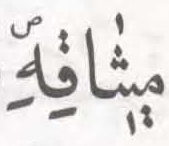 مٖيثٰاقِهِ ص